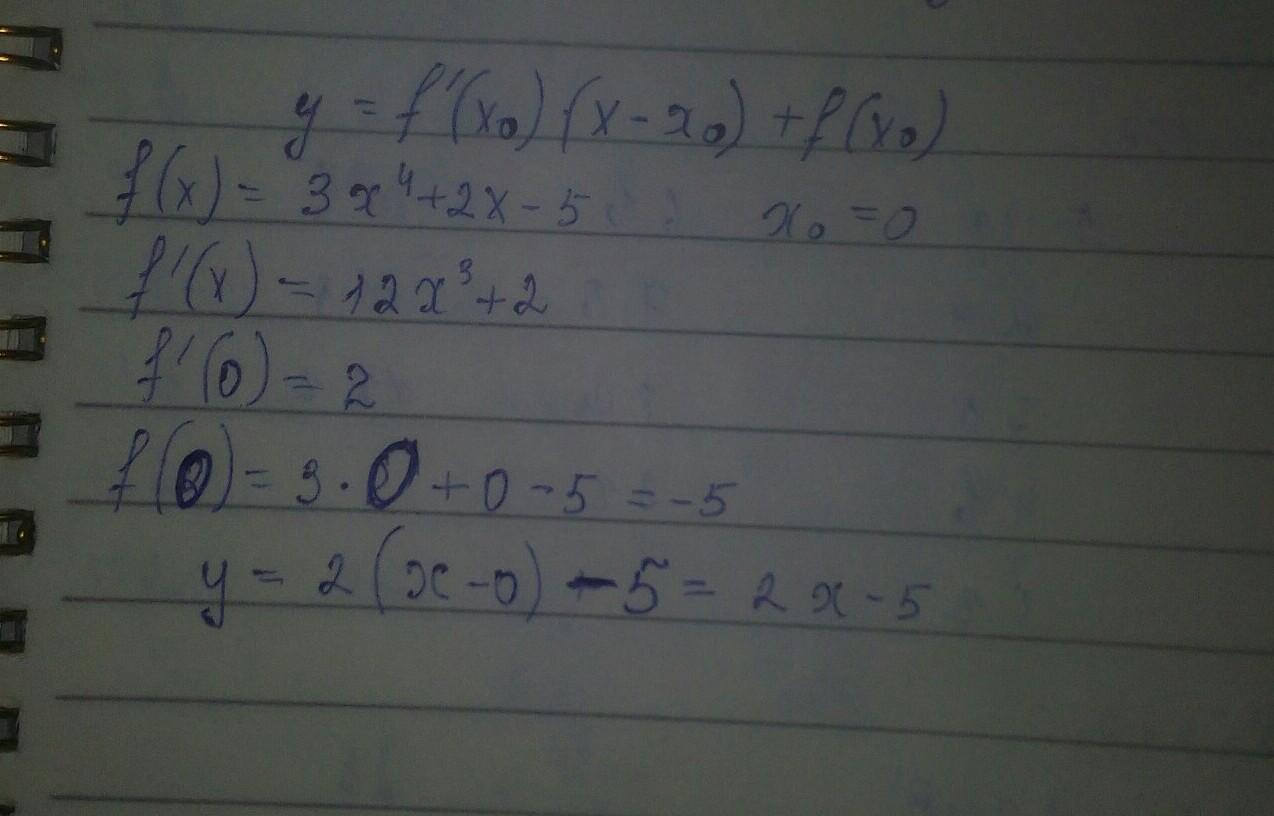 y = f'(x₀)(x - x₀) + f(x₀)
f(x) = 3x⁴ + 2x - 5 x₀ = 0
f'(x) = 12x³ + 2
f'(0) = 2
f(0) = 3 · 0 + 0 - 5 = -5
y = 2(x - 0) - 5 = 2x - 5